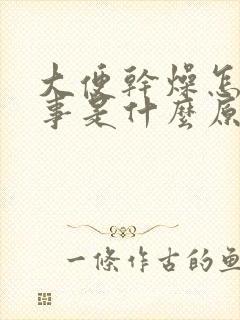 大便幹燥怎
事是什麼原
一條作古的魚